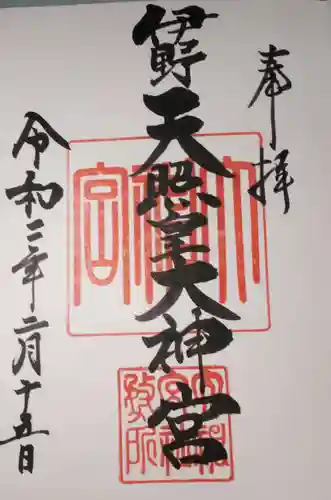 奉拝
伊野
天照皇大神宮
令和二年二月十五日